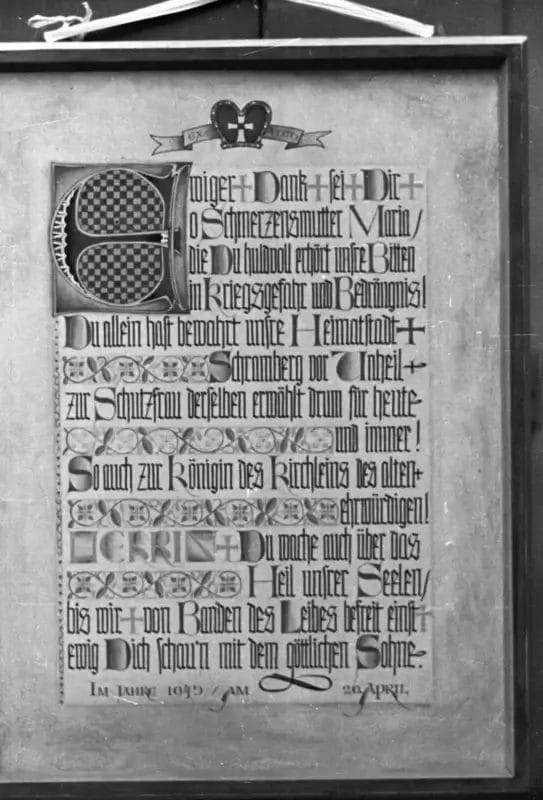 EX VOTO
Ewiger + Dank + sei + Dir +
o Schmerzensmutter Maria /
die Du huldvoll erhört unsre Bitten
in Kriegsgefahr und Bedrängnis!
Du allein hast bewahrt unsre Heimatstadt +
Schramberg vor Unheil +
zur Schutzfrau derselben erwählt drum für heute-
und immer!
So auch zur Königin des Kirchleins des alten +
ehrwürdigen!
HERRIN + Du wache auch über das
Heil unsrer Seelen /
bis wir + von Banden des Leibes befreit einst +
ewig Dich schau'n mit dem göttlichen Sohne.
IM JAHRE / AM 20. APRIL